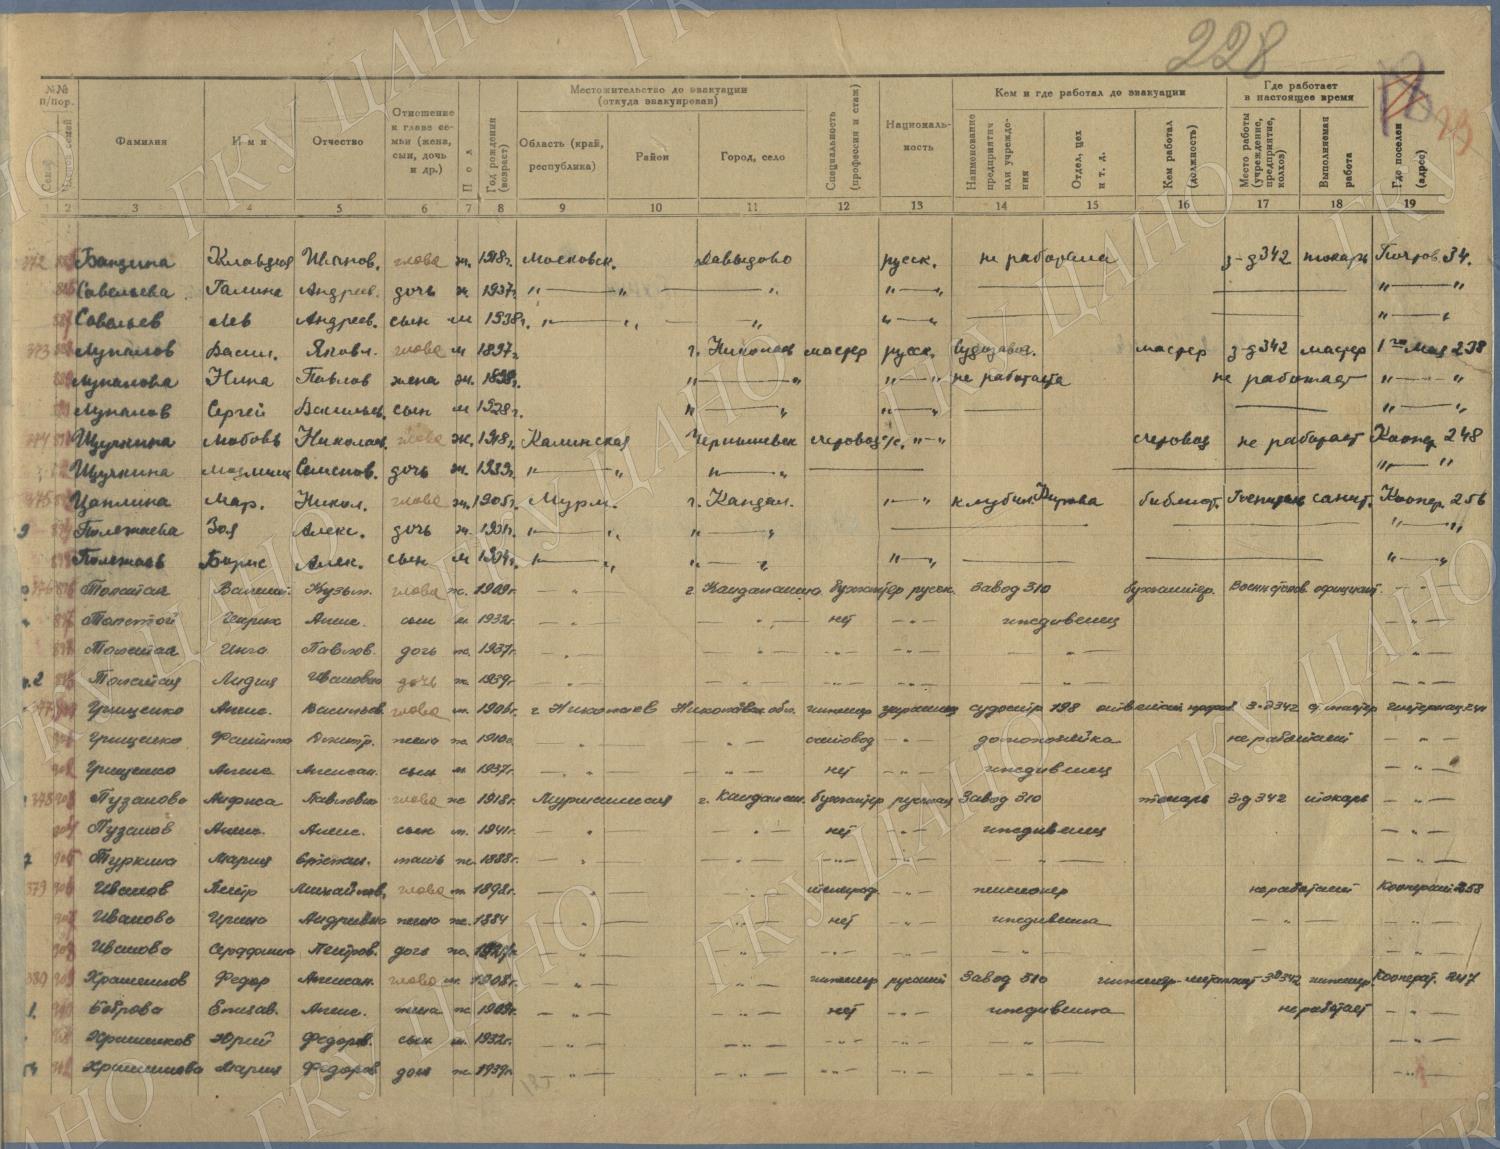 228
№№ п/пор.
Семьи
Членов семей
Фамилия
Имя
Отчество
Отношение к главе семьи (жена, сын, дочь и др.)
Пол
Год рождения (возраст)
Местожительство до эвакуации (откуда эвакуирован)
Область (край, республика)
Район
Город, село
Специальность (профессия и стаж)
Националь-ность
Кем и где работал до эвакуации
Наименование предприятия или учреждения
Отдел, цех и т. д.
Кем работал (должность)
Где работает в настоящее время
Место работы (учреждение, предприятие, колхоз)
Выполняемая работа
Где поселен (адрес)
1 2 3 4 5 6 7 8 9 10 11 12 13 14 15 16 17 18 19
372 Клавдия Иванов. глава ж. 1918г. Московск. Давыдово русск. не работала з-д 342 токарь 34.
Савельева Галина Андреев. дочь ж 1937г. " — " — " " — " — — " — "
Савельев Лев Андреев. сын м 1938г. " — " " " — " — — " — "
373 Лупанов Васил. Яковл. глава м 1897г. г. Николаев мастер русск. Судозавод. мастер з-д 342 мастер 1го Мая 238
Лупанова Нина Павлов жена ж. 1898г. " — " " — " не работала не работает " — "
Лупанов Сергей Васильев. сын м 1928г. " — " " — " — — " — "
374 Щучкина Любовь Николаев. глава ж. 1918г. Калинская счетовод " — " счетовод не работает Коопер 248
Щучкина Семенов. дочь ж. 1939г. " — " " — " — — " — "
375 Цаплина Мар. Никол. глава ж. 1905г. Мурм. г. Кандал. " — " клуб им. Кирова библиот. Госпиталь санит. Коопер. 256
Полежаева Зоя Алекс. дочь ж. 1931г. " — " " — " — — " — "
Полежаев Борис Алек. сын м 1934г. " — " " — " " — " — — " — "
376 Толстая Кузьм. глава ж. 1909г. — " — г. Кандалакша бухгалтер русск. Завод 310 бухгалтер. официант. — " —
Толстой Алекс. сын м 1932г. — " — — " — нет — " — иждивенец — " —
Толстая Инга Павлов. дочь ж. 1937г. — " — — " — — " — — " — — " — — " —
Толстая Лидия Ивановна дочь ж. 1939г — " — — " — — " — — " — — " — — " —
377 Грищенко Алекс. Васильев. глава м. 1906г. г. Николаев Николаевск. обл. инженер украинец судостр 198 З-д 342 ст. мастер
Грищенко Дмитр. жена ж. 1910г. — " — — " — счетовод — " — домохозяйка не работает — " —
Грищенко Алекс Алексан. сын м. 1937г. — " — — " — нет — " — иждивенец — " —
378 Пузанова Анфиса Павловна глава ж 1918г. Мурманская г. Кандалак. бухгалтер русская Завод 310 токарь З-д 342 токарь — " —
Пузанов Алекс. Алекс. сын м. 1941г. " — " — нет — " — иждивенец — " —
Туркина Мария мать ж. 1888г. — " — — " — — " — — " — " — " —
379 Иванов Петр Михайлов. глава м. 1892г. — " — — " — — " — пенсионер не работает Кооператив 258
Иванова Ирина Андреевна жена ж. 1884 — " — — " — нет — " — иждивенка — " — — " —
Иванова Петров. дочь ж. — " — — " — — " — — " — — " — — " —
380 Храменков Федор Алексан. глава м. 1908г. — " — — " — инженер русский Завод 310 инженер-металлист З-д 342 инженер. Кооперат. 247
Боброва Елизав. Алекс. жена ж 1909г. — " — — " — нет — " — иждивенка не работает — " —
Храменков Юрий Федоров. сын м. 1932г. — " — — " — — " — — " — — " — — " —
Храменкова Мария Федоров дочь ж. 1939г. — " — — " — — " — — " — — " — — " —
ГКУ ЦАНО